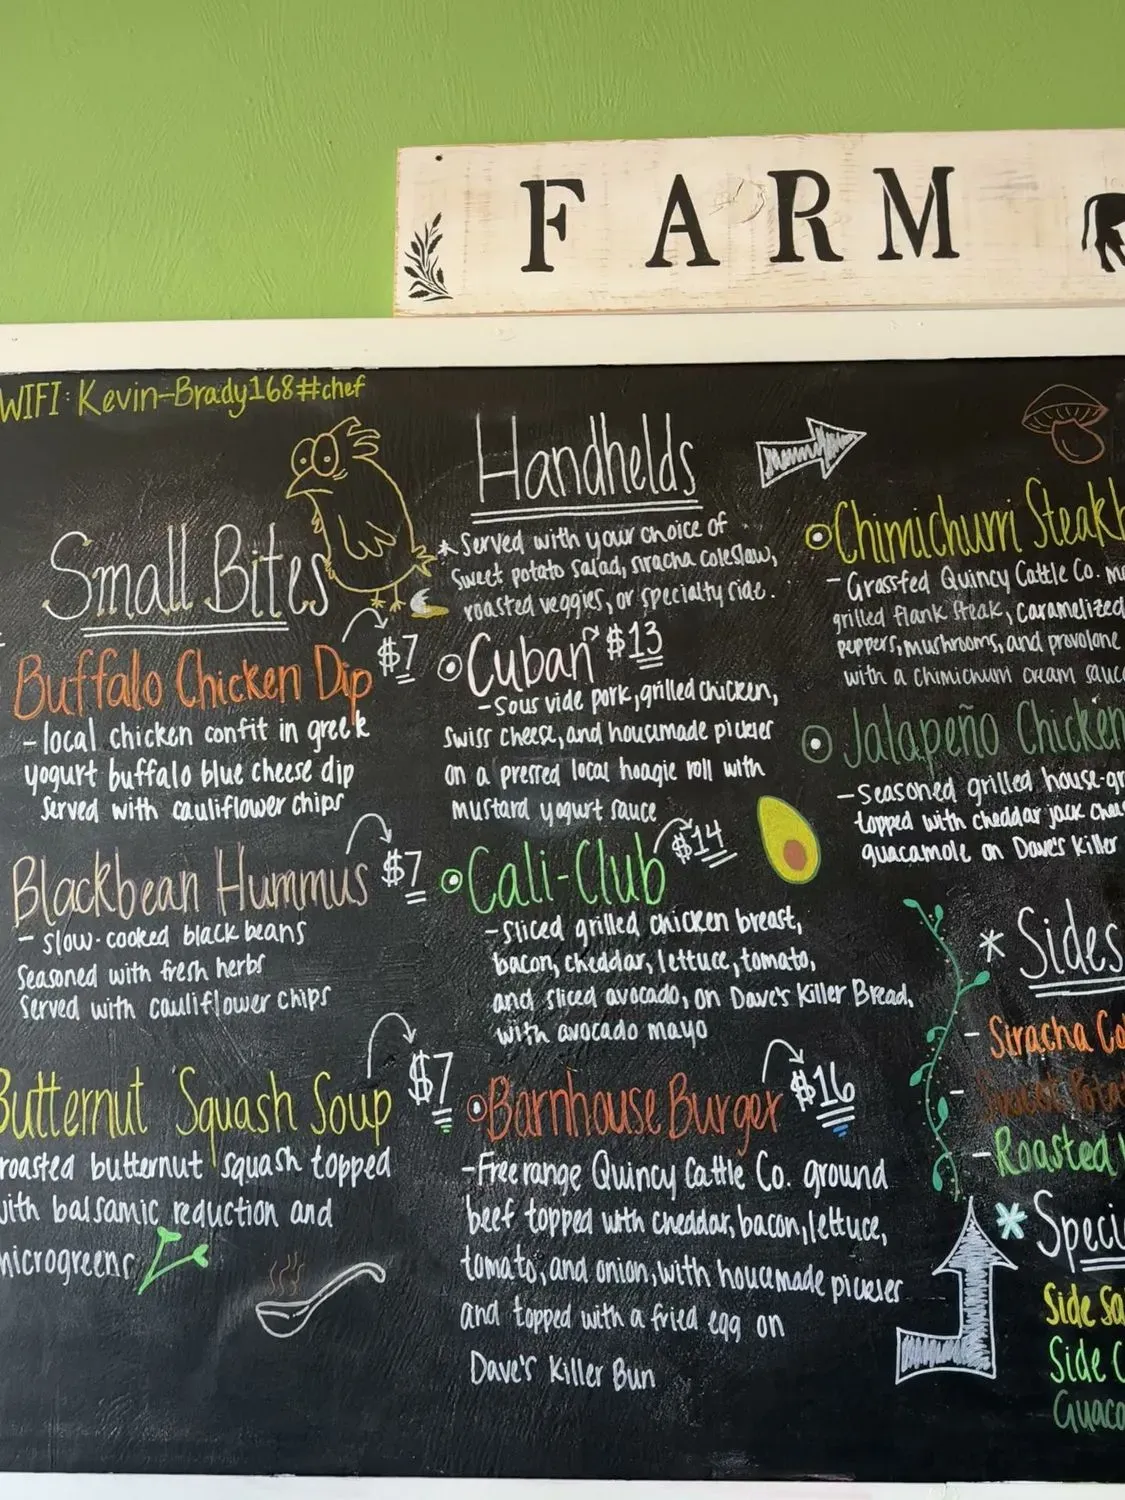 FARM
WIFI: Kevin-Brady168#chef
Small Bites
Buffalo Chicken Dip $7
- local chicken confit in greek
yogurt buffalo blue cheese dip
served with cauliflower chips
Blackbean Hummus $7
- slow-cooked black beans
seasoned with fresh herbs
served with cauliflower chips
Butternut Squash Soup $7
roasted butternut squash topped
with balsamic reduction and
microgreens
Handhelds
* Served with your choice of
sweet potato salad, siracha coleslaw,
roasted veggies, or specialty side.
Cuban $13
- Sous vide pork, grilled chicken,
swiss cheese, and housemade pickles
on a pressed local hoagie roll with
mustard yogurt sauce
Cali-Club $14
- sliced grilled chicken breast,
bacon, cheddar, lettuce, tomato,
and sliced avocado, on Dave's Killer Bread,
with avocado mayo
Barnhouse Burger $16
- Free range Quincy Cattle Co. ground
beef topped with cheddar, bacon, lettuce,
tomato, and onion, with housemade pickles
and topped with a fried egg on
Dave's Killer Bun
Chimichurri
- Grassfed Quincy Cattle Co.
grilled flank steak, caramelized
peppers, mushrooms, and provolone
with a chimichuri cream
Jalapeño Chicken
- Seasoned grilled
topped with cheddar jack
guacamole on Dave's Killer
* Sides
- Siracha
- Sweet
- Roasted
*
Side
Side